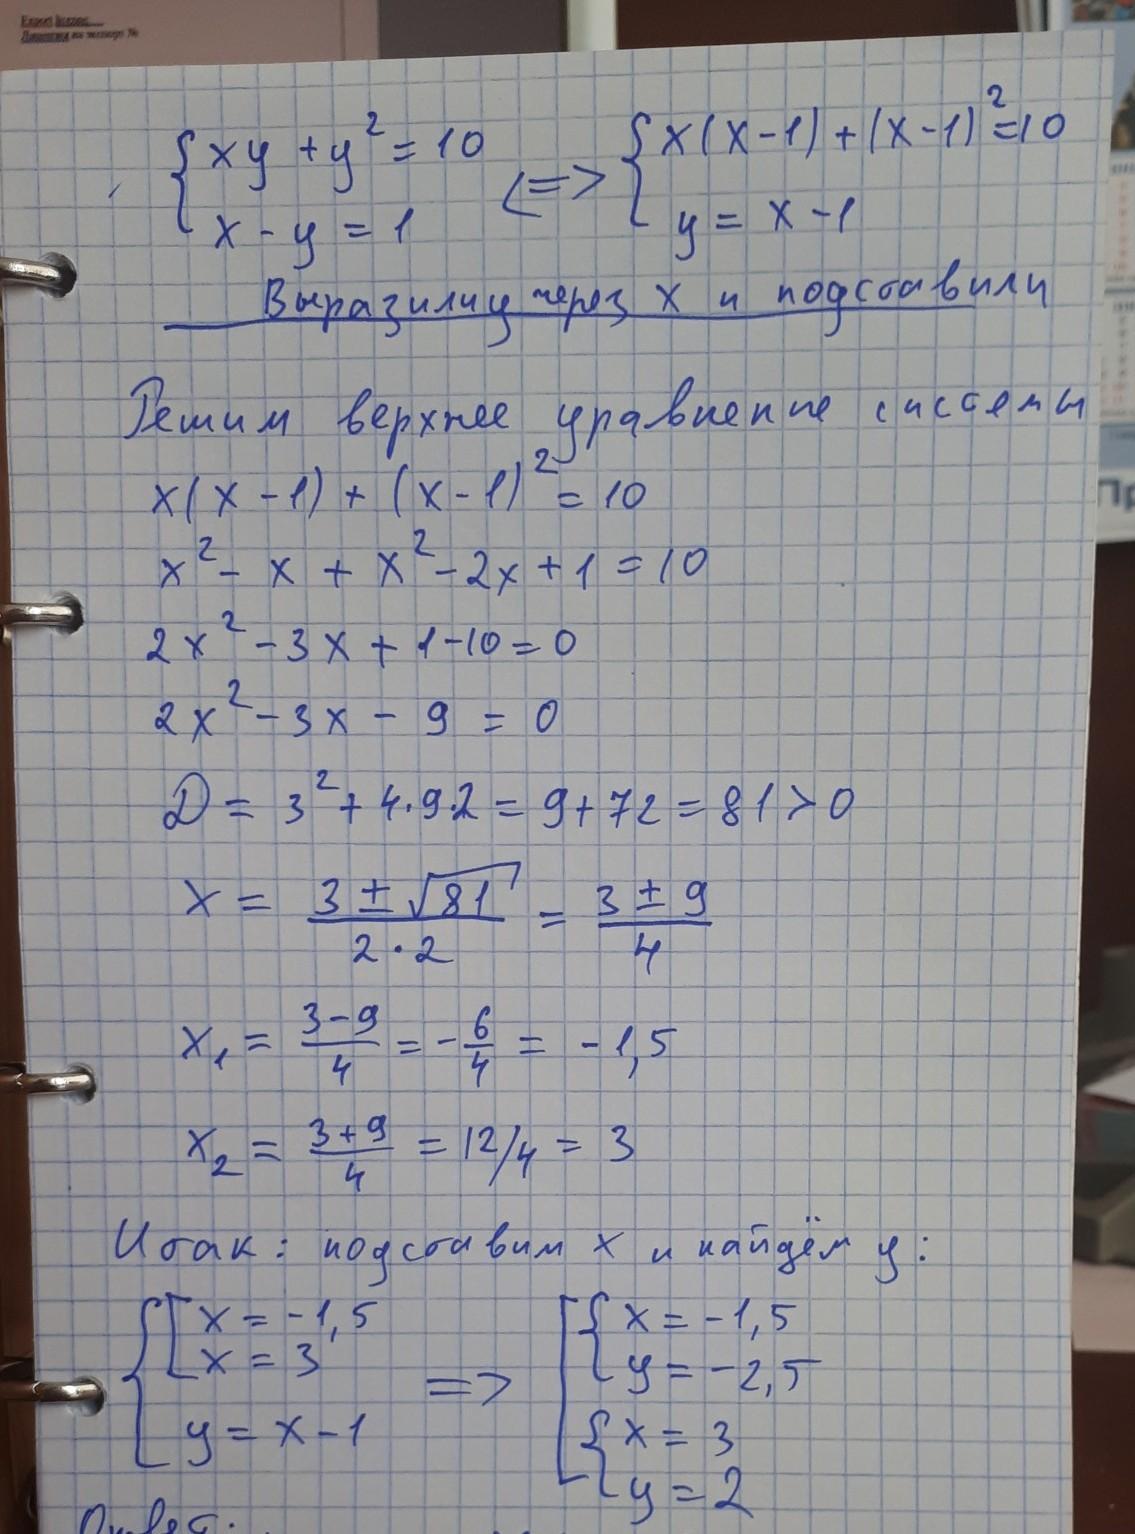 { xy + y² = 10 <=> { x(x-1) + (x-1)² = 10
x - y = 1 y = x - 1
Выразили y через x и подставили
Решим верхнее уравнение системы
x(x-1) + (x-1)² = 10
x² - x + x² - 2x + 1 = 10
2x² - 3x + 1 - 10 = 0
2x² - 3x - 9 = 0
D = 3² + 4·9·2 = 9 + 72 = 81 > 0
x = (3 ± √81)/(2·2) = (3 ± 9)/4
x₁ = (3-9)/4 = -6/4 = -1,5
x₂ = (3+9)/4 = 12/4 = 3
Итак: подставим x и найдём y:
{ [ x = -1,5 => [ { x = -1,5
x = 3 y = -2,5
y = x - 1 { x = 3
y = 2
Ответ:
Пр